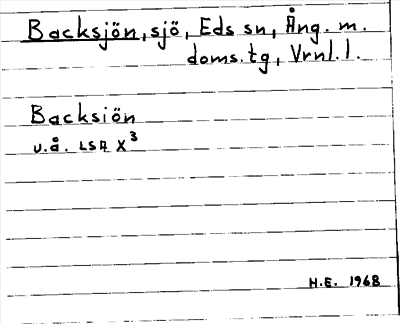 Backsjön, sjö, Eds sn, Ång. m.
doms.tg, Vrnl.l.
Backsiön
u.å. LSA X3
H.E. 1968